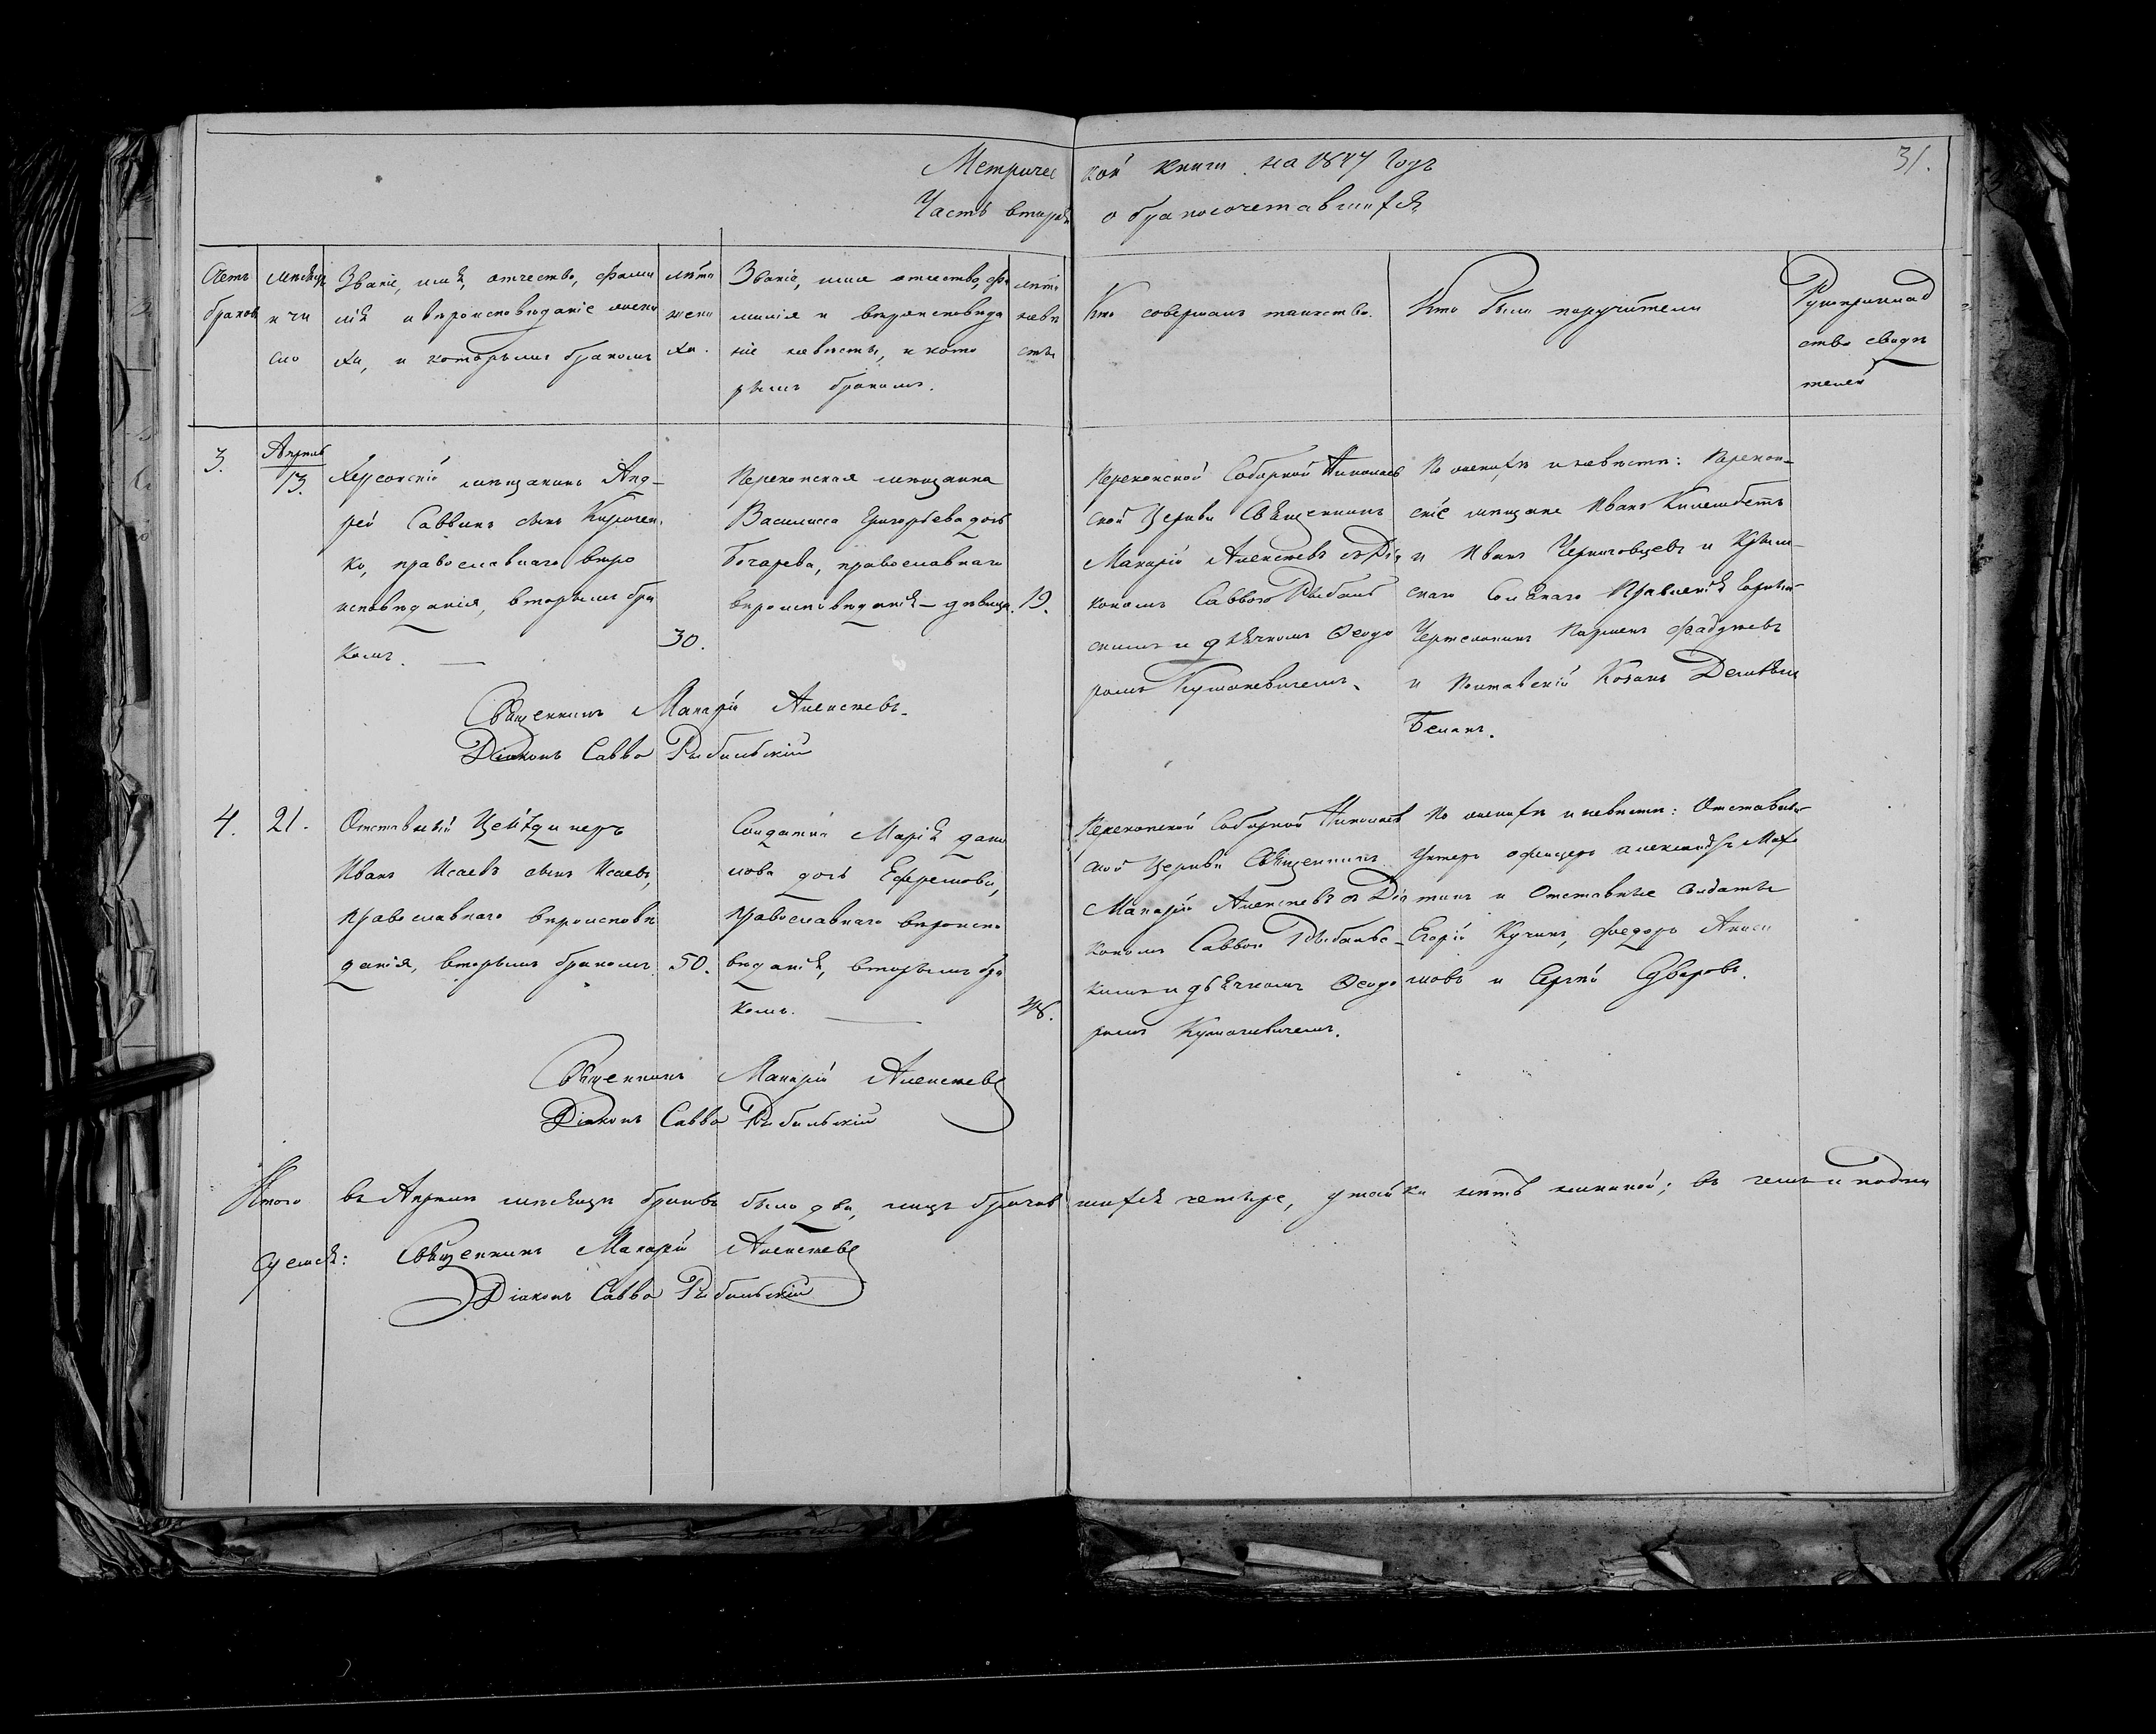 Метричес кой книги на 1847 Годъ
31.
Часть вторая о бракосочетавшихся
Счетъ браковъ
Мѣсяцъ и чи сло
Званіе, имя, отчество, фами
лія и вѣроисповѣданіе жени
ха, и которымъ бракомъ
лѣта жени ха.
Званіе, имя отчество, фа
милія и вѣроисповѣда
ніе невѣсты, и кото
рымъ бракомъ.
лѣта невѣ сты
Кто совершалъ таинство.
Кто были поручители
Рукоприклад
ство свидѣ
телей
3.
Апрѣль
13.
Херсонскій мѣщанинъ Анд-
рей Саввинъ сынъ Киричен
ко, православнаго вѣро
исповѣданія, вторымъ бра
комъ.
30.
Перекопская мѣщанка
Василисса Григорьева дочь
Бочарева, православнаго
вѣроисповѣданія - дѣвица.
19.
Перекопской Соборной Николаев
ской Церкви Священникъ
Макарій Алексѣевъ съ Діа
кономъ Саввою Рыбаль
скимъ и дьячкомъ Ѳеодо
ромъ
По женихѣ и невѣстѣ: Перекоп-
скіе мѣщане Иванъ
и Иванъ Черниговцевъ и Крым-
скаго Солянаго Правленія
и Полтавскій Козакъ
Священникъ Макарій Алексѣевъ.
Діаконъ Савва Рыбальскій
4.
21.
Отставной Цейхдинеръ
Иванъ Исаевъ сынъ Исаевъ,
православнаго вѣроисповѣ
данія, вторымъ бракомъ
50.
Солдатка Марія Дани
лова дочь Ефремова,
православнаго вѣроиспо
вѣданія, вторымъ бра
комъ.
Перекопской Соборной Николаев
ской Церкви Священникъ
Макарій Алексѣевъ съ Діа
кономъ Саввою Рыбальс-
кимъ и дьячкомъ Ѳеодо
ромъ
По женихѣ и невѣстѣ: Отставные
Унтеръ офицеръ Александръ
и Отставные Солдаты
Егорій Кучинъ, Федоръ Аниси
мовъ и Сергѣй
Священникъ Макарій Алексѣевъ
Діаконъ Савва Рыбальскій
Итого въ Апрѣлѣ мѣсяцѣ браковъ было два, лицъ брачив шихся четыре, утайки нѣтъ никакой; въ чемъ и подпи
суемся: Священникъ Макарій Алексѣевъ
Діаконъ Савва Рыбальскій